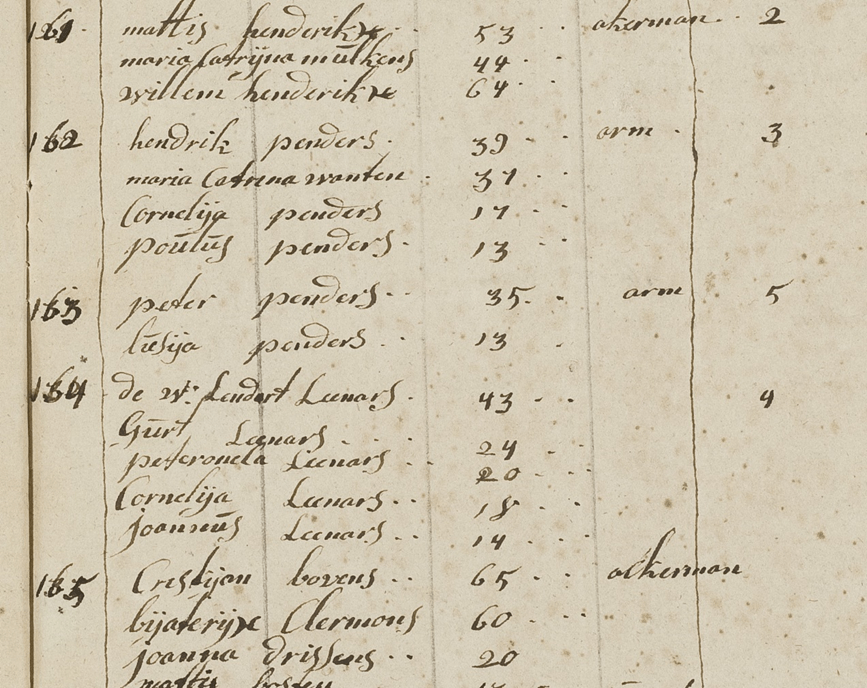 161 mattis henderikx 53 akerman 2
maria Catrijna mülkens 44
willem henderikx 64
162 hendrik penders 39 arm 3
maria Catrina wanten 37
Cornelija penders 17
poülüs penders 13
163 peter penders 35 arm 5
lüsija penders 13
164 de w: Lendert Leenars 43 4
Gürt Leenars 24
peteronela Leenars 20
Cornelija Leenars 18
joannüs Leenars 14
165 Cristijan bovens 65 ackerman
bijaterijx Clermons 60
joanna drissens 20
mattis bosten